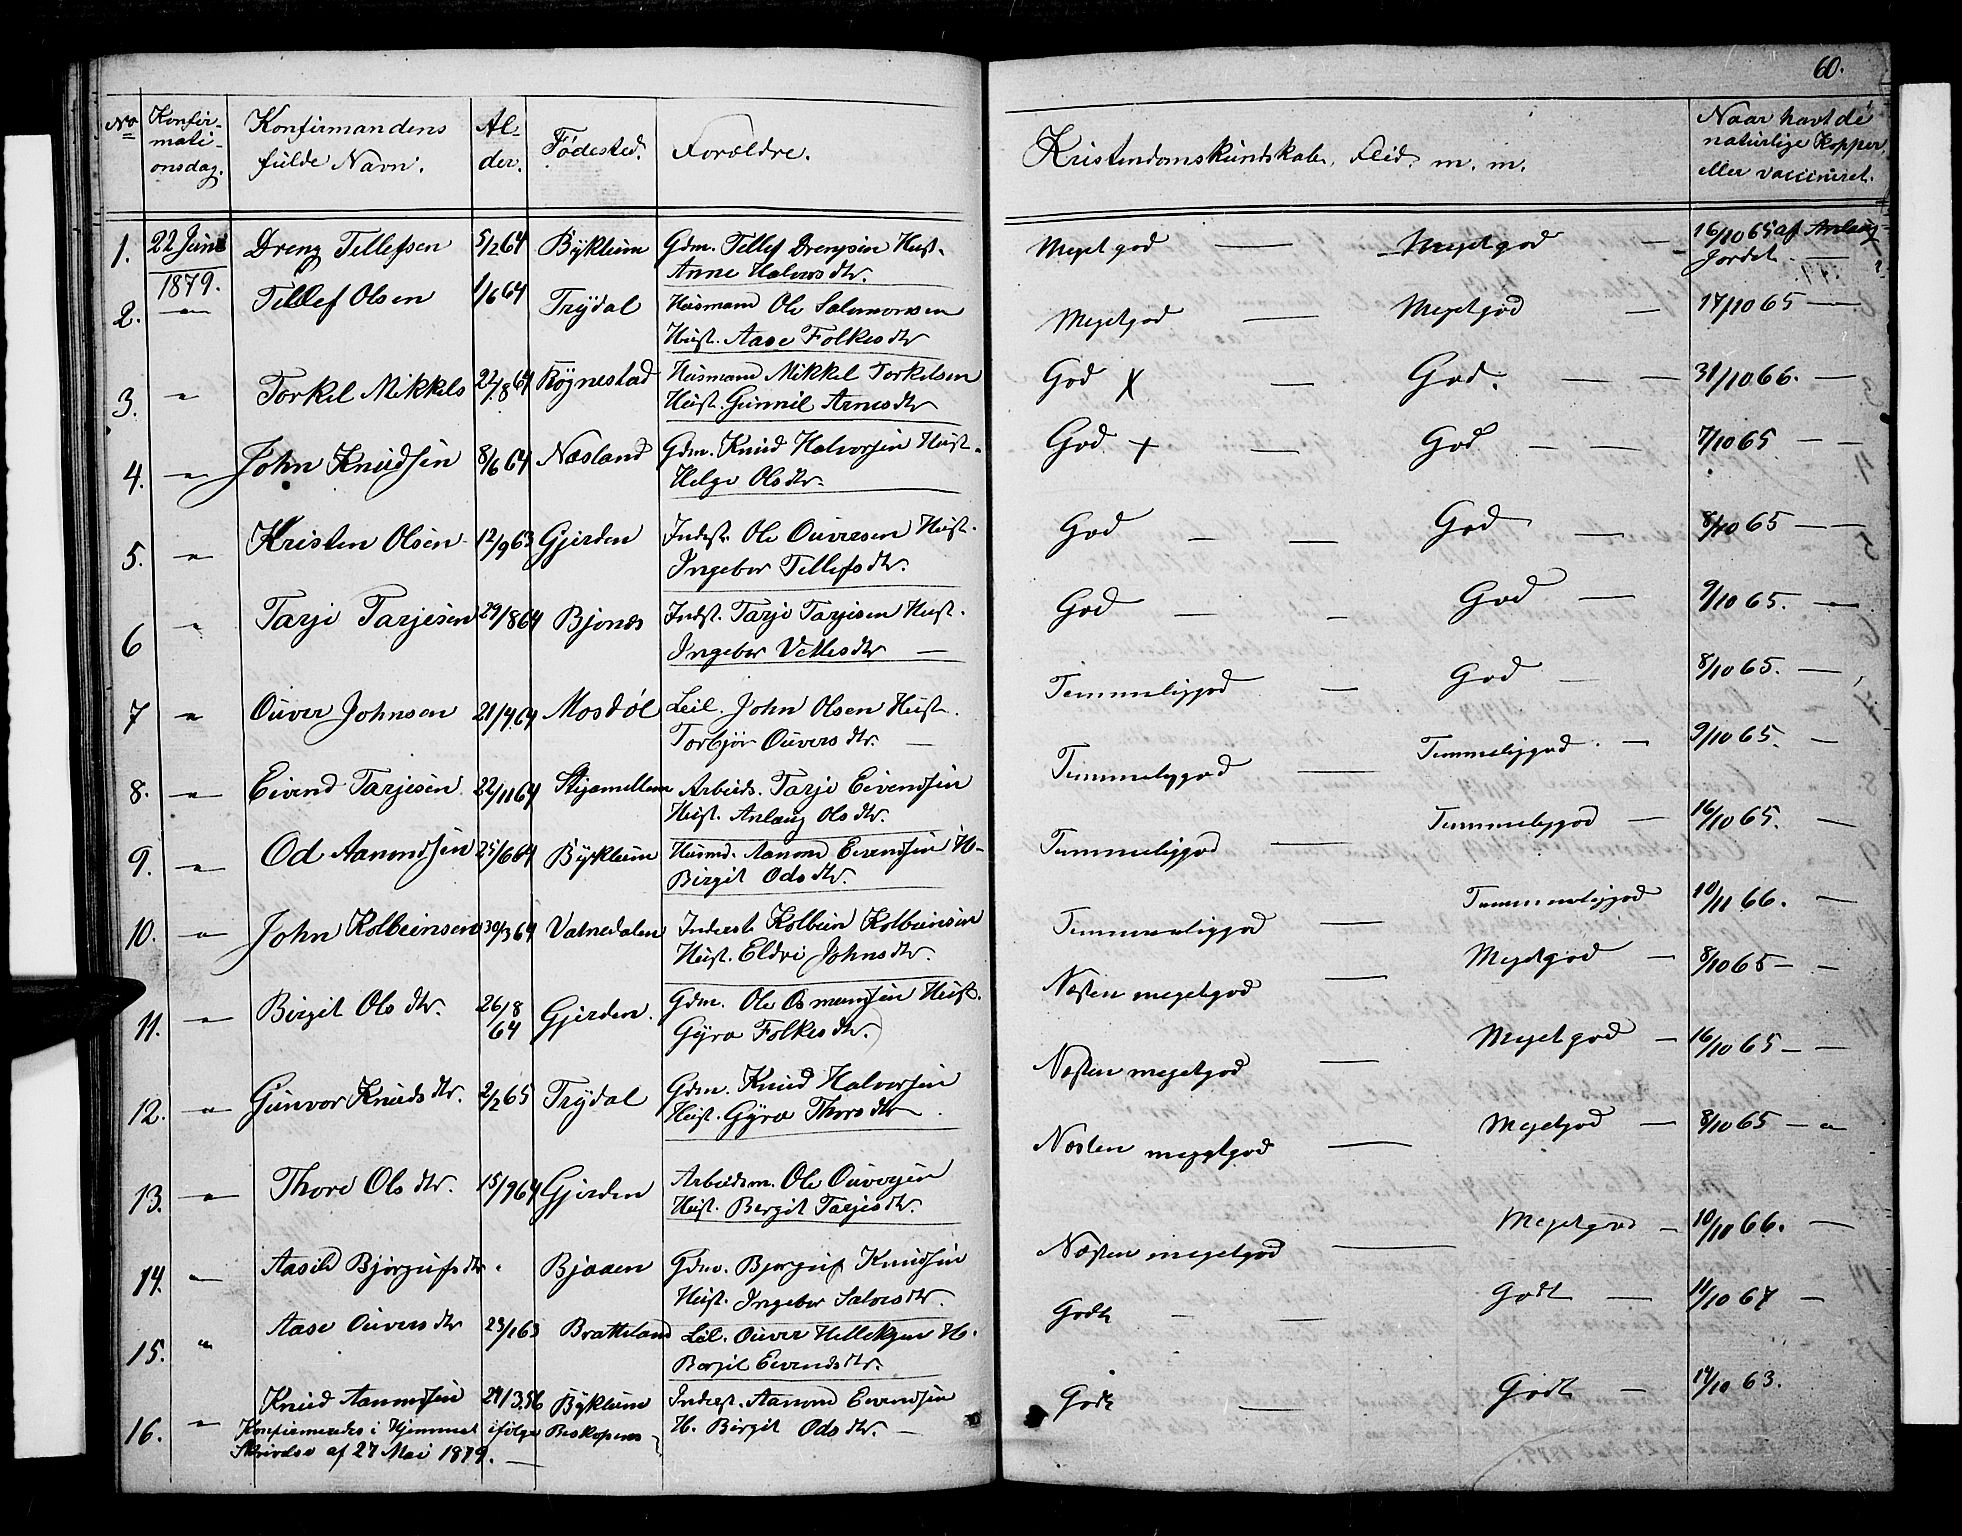 60.
No Konfirmationsdag. Konfirmandens fulde Navn. Alder. Fødested. Forældre. Kristendomskundskab, Flid m. m. Naar havt de naturlige Kopper, eller vaccineret.
1. 22 Juni 1879. Dreng Tellefsen 5/2 64 Bykleum Gdm. Tellef Drengsen Hust. Anne Halvorsdtr. Megetgod — Megetgod — 16/10 65 af Anlaug Jordet —
2. — " — Tellef Olsen 1/6 64 Trydal Husmand Ole Salomonsen Hust. Aase Folkesdtr Megetgod — Megetgod — 17/10 65 —
3. " Torkel Mikkels 22/8 64 Røgnestad Husmand Mikkel Torkelsen Hust. Gunnil Arnesdtr God X — God. — — 31/10 66. —
4. — " — John Knudsen 8/6 64 Næsland Gdm. Knud Halvorsen Hust. Helge Olsdtr. God + — God — — 7/10 65 — —
5. — " — Kristen Olsen 12/9 63 Gjerden Inderst. Ole Ouversen Hust. Ingebor Tellefsdtr. God — — God — 8/10 65 — —
6 " Tarje Tarjesen 29/8 64 Bjones Indst. Tarje Tarjesen Hust. Ingebor Vettesdtr — God — — God — 9/10 65. — " —
7 — " — Ouver Johnsen 21/4 64 Mosdøl Leil. John Olsen Hust. Torbjør Ouversdtr. — Temmeliggod — God — 8/10 65. —
8. — " — Eivend Tarjesen 22/11 64 Skjamellem Arbeids. Tarje Eivendsen Hust. Anlaug Olsdtr. Temmeliggod — Temmeliggod. — 9/10 65. —
9. — " — Od Aanondsen 25/6 64 Bykleum Husmd. Aanond Eivendsen H— Birgit Odsdtr. Temmeliggod — Temmeliggod — 16/10 65. —
10. — " — John Kolbeinsen 30/3 64 Vatnedalen Inderst Kolbein Kolbeinsen Hust. Eldri Johnsdtr. Temmeliggod — Temmeliggod 10/11 66. —
11. — " — Birgit Olsdtr. 26/8 64 Gjerden. Gdm. Ole Osmundsen Hust. Gyro Folkesdtr. Næsten megetgod — Megetgod — 8/10 65 — —
12. — " — Gunvor Knudsdtr. 2/2 65 Trydal Gdm. Knud Halvorsen Hust. Gyro Thorsdtr. Næsten megetgod — Megetgod — 16/10 65 — —
13. — " — Thore Olsdtr. 15/9 64 Gjerden Arbeidsm. Ole Ouversen Hust. Bergit Tarjesdtr. Næsten megetgod — Megetgod — 8/10 65 — "
14. — " — Aasild Bjørgufsdtr. Bjaaen Gdm. Bjørguf Knudsen Hust. Ingebor Salvesdtr. Næsten megetgod — Megetgod — 10/10 66. —
15. " Aase Ouversdtr 23/1 63 Bratteland Leil. Ouver Helleksen H. Borgil Eivendsdtr. Godt — — Godt — 11/10 67 —
16. — " Knud Aanondsen 24/3 56 Bykleum Inderst. Aanond Eivendsen H. Birgit Odsdtr. — Godt — Godt — 14/10 63.
Konfirmeredes i Hjemmet ifølge Beskopens
Skrivelse af 27 Mai 1879. —